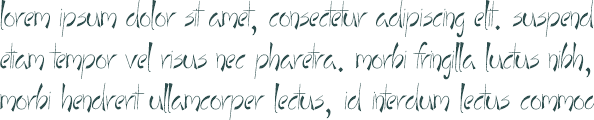 lorem ipsum dolor sit amet, consectetur adipiscing elit. suspend
etam tempor vel risus nec pharetra. morbi fringilla luctus nibh,
morbi hendrerit ullamcorper lectus, id interdum lectus commod